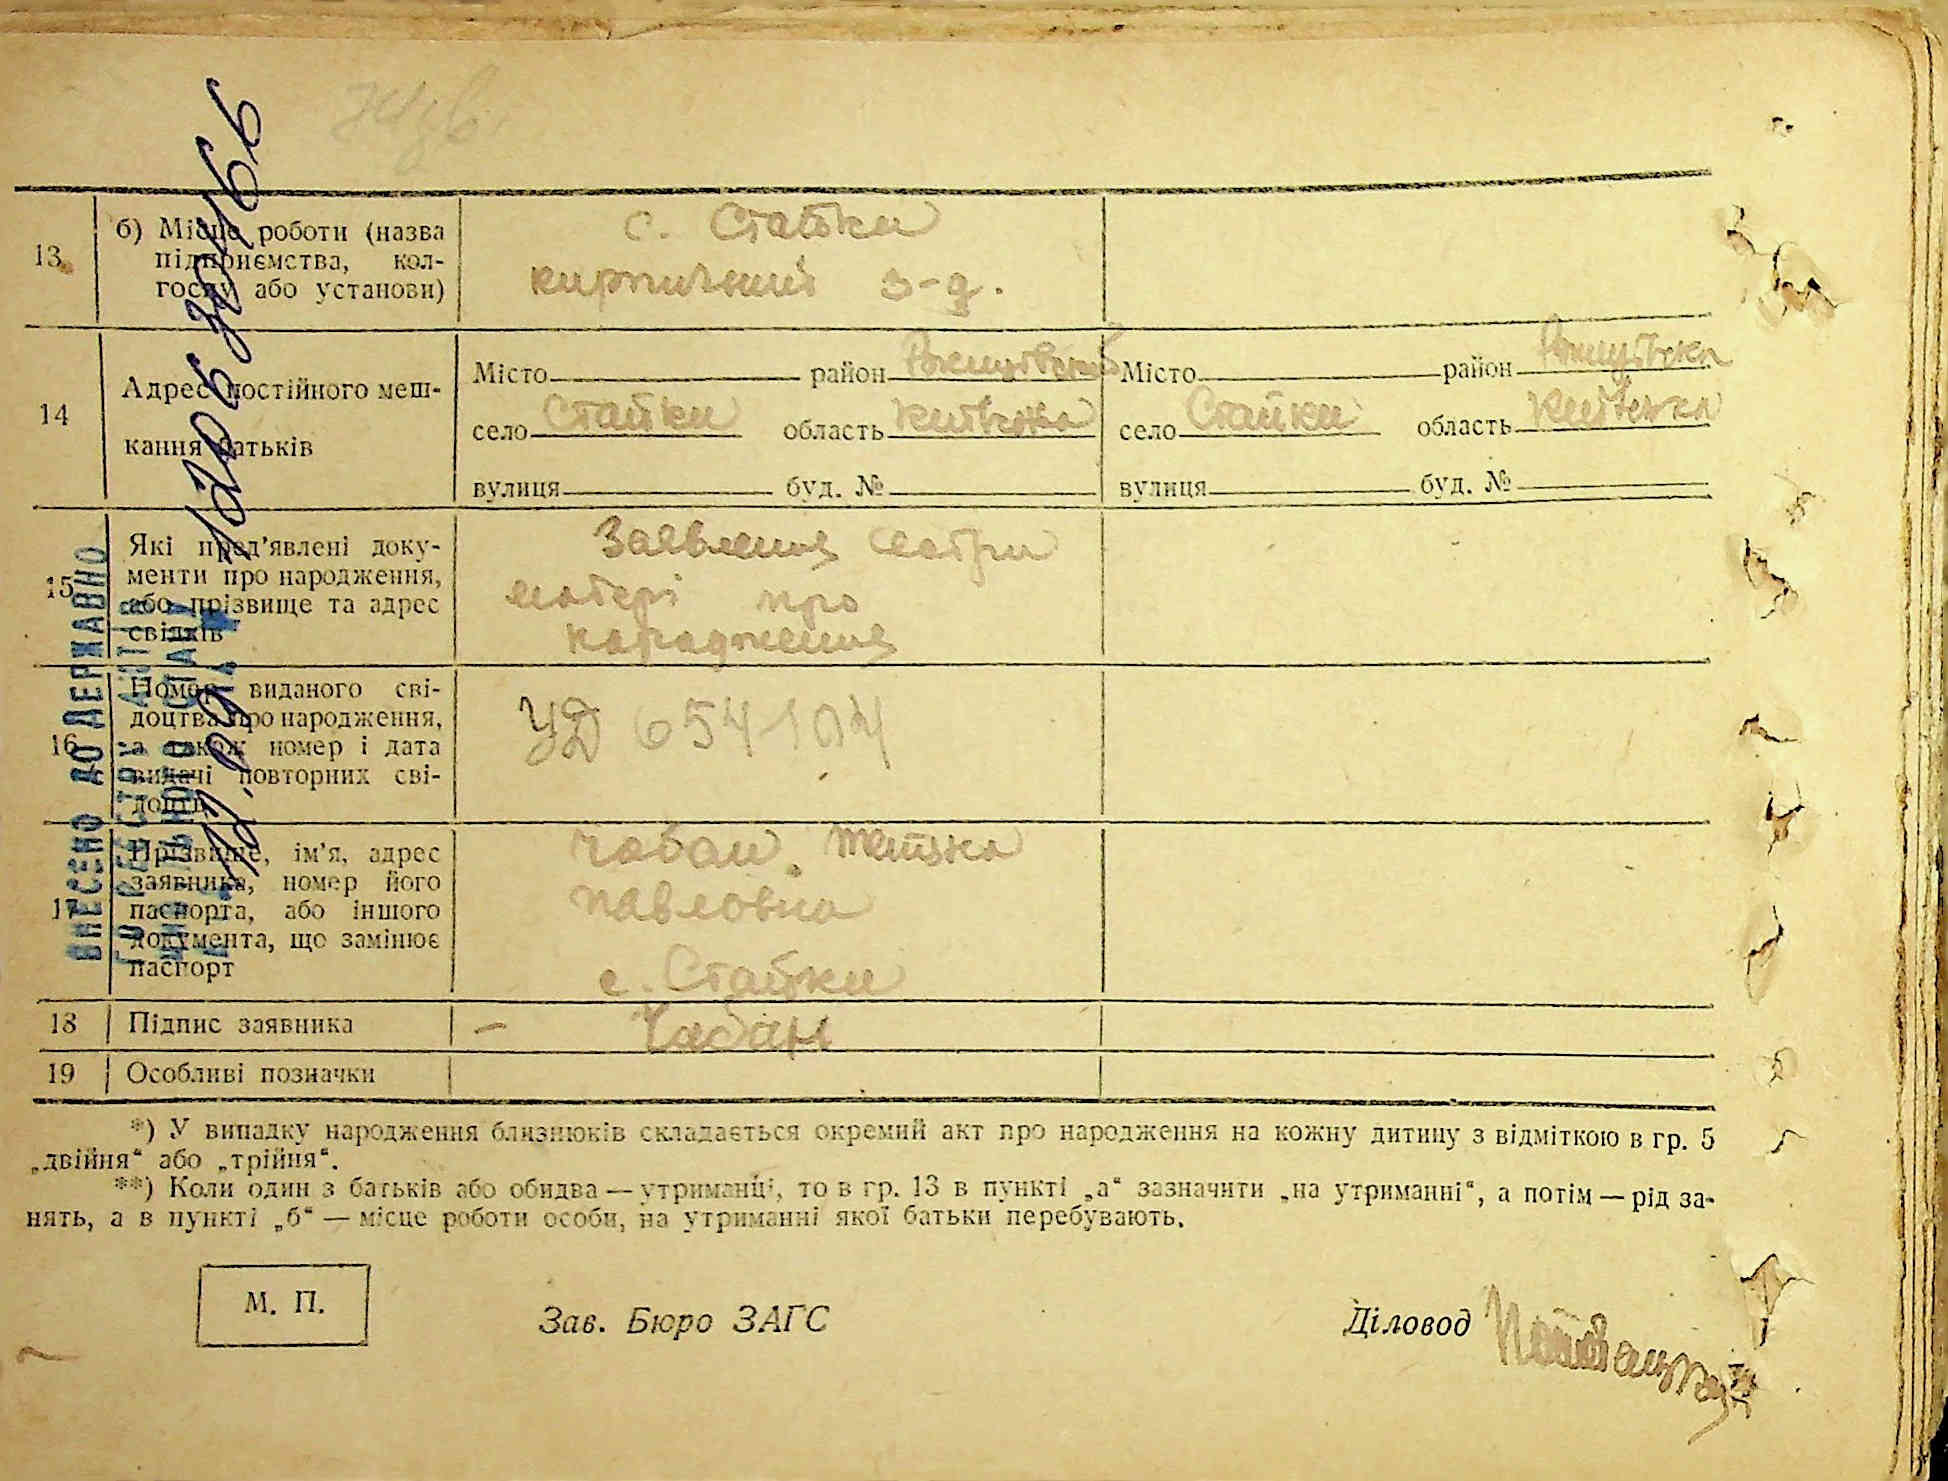 13
б) Місце роботи (назва
підприємства, кол-
госпу або установи)
с. Стайки
кирпичний з-д.
14
Адрес постійного меш-
кання батьків
Місто район
село Стайки область Київська
вулиця буд. №
Місто район
село Стайки область Київська
вулиця буд. №
15
Які пред'явлені доку-
менти про народження,
або прізвище та адрес
свідків
Заявление сестри
матері про
народження
16
Номер виданого сві-
доцтва про народження,
а також номер і дата
видачі повторних сві-
доцтв
УД 654104
17
Прізвище, ім'я, адрес
заявника, номер його
паспорта, або іншого
документа, що замінює
паспорт
Чабан
Павловна
с. Стайки
18
Підпис заявника
— Чабан
19
Особливі позначки
ВНЕСЕНО ДО ДЕРЖАВНО
ГО РЕЄСТРУ АКТІВ
*) У випадку народження близнюків складається окремий акт про народження на кожну дитину з відміткою в гр. 5
„двійня“ або „трійня“.
**) Коли один з батьків або обидва — утриманці, то в гр. 13 в пункті „а“ зазначити „на утриманні“, а потім — рід за-
нять, а в пункті „б“ — місце роботи особи, на утриманні якої батьки перебувають.
М. П.
Зав. Бюро ЗАГС
Діловод